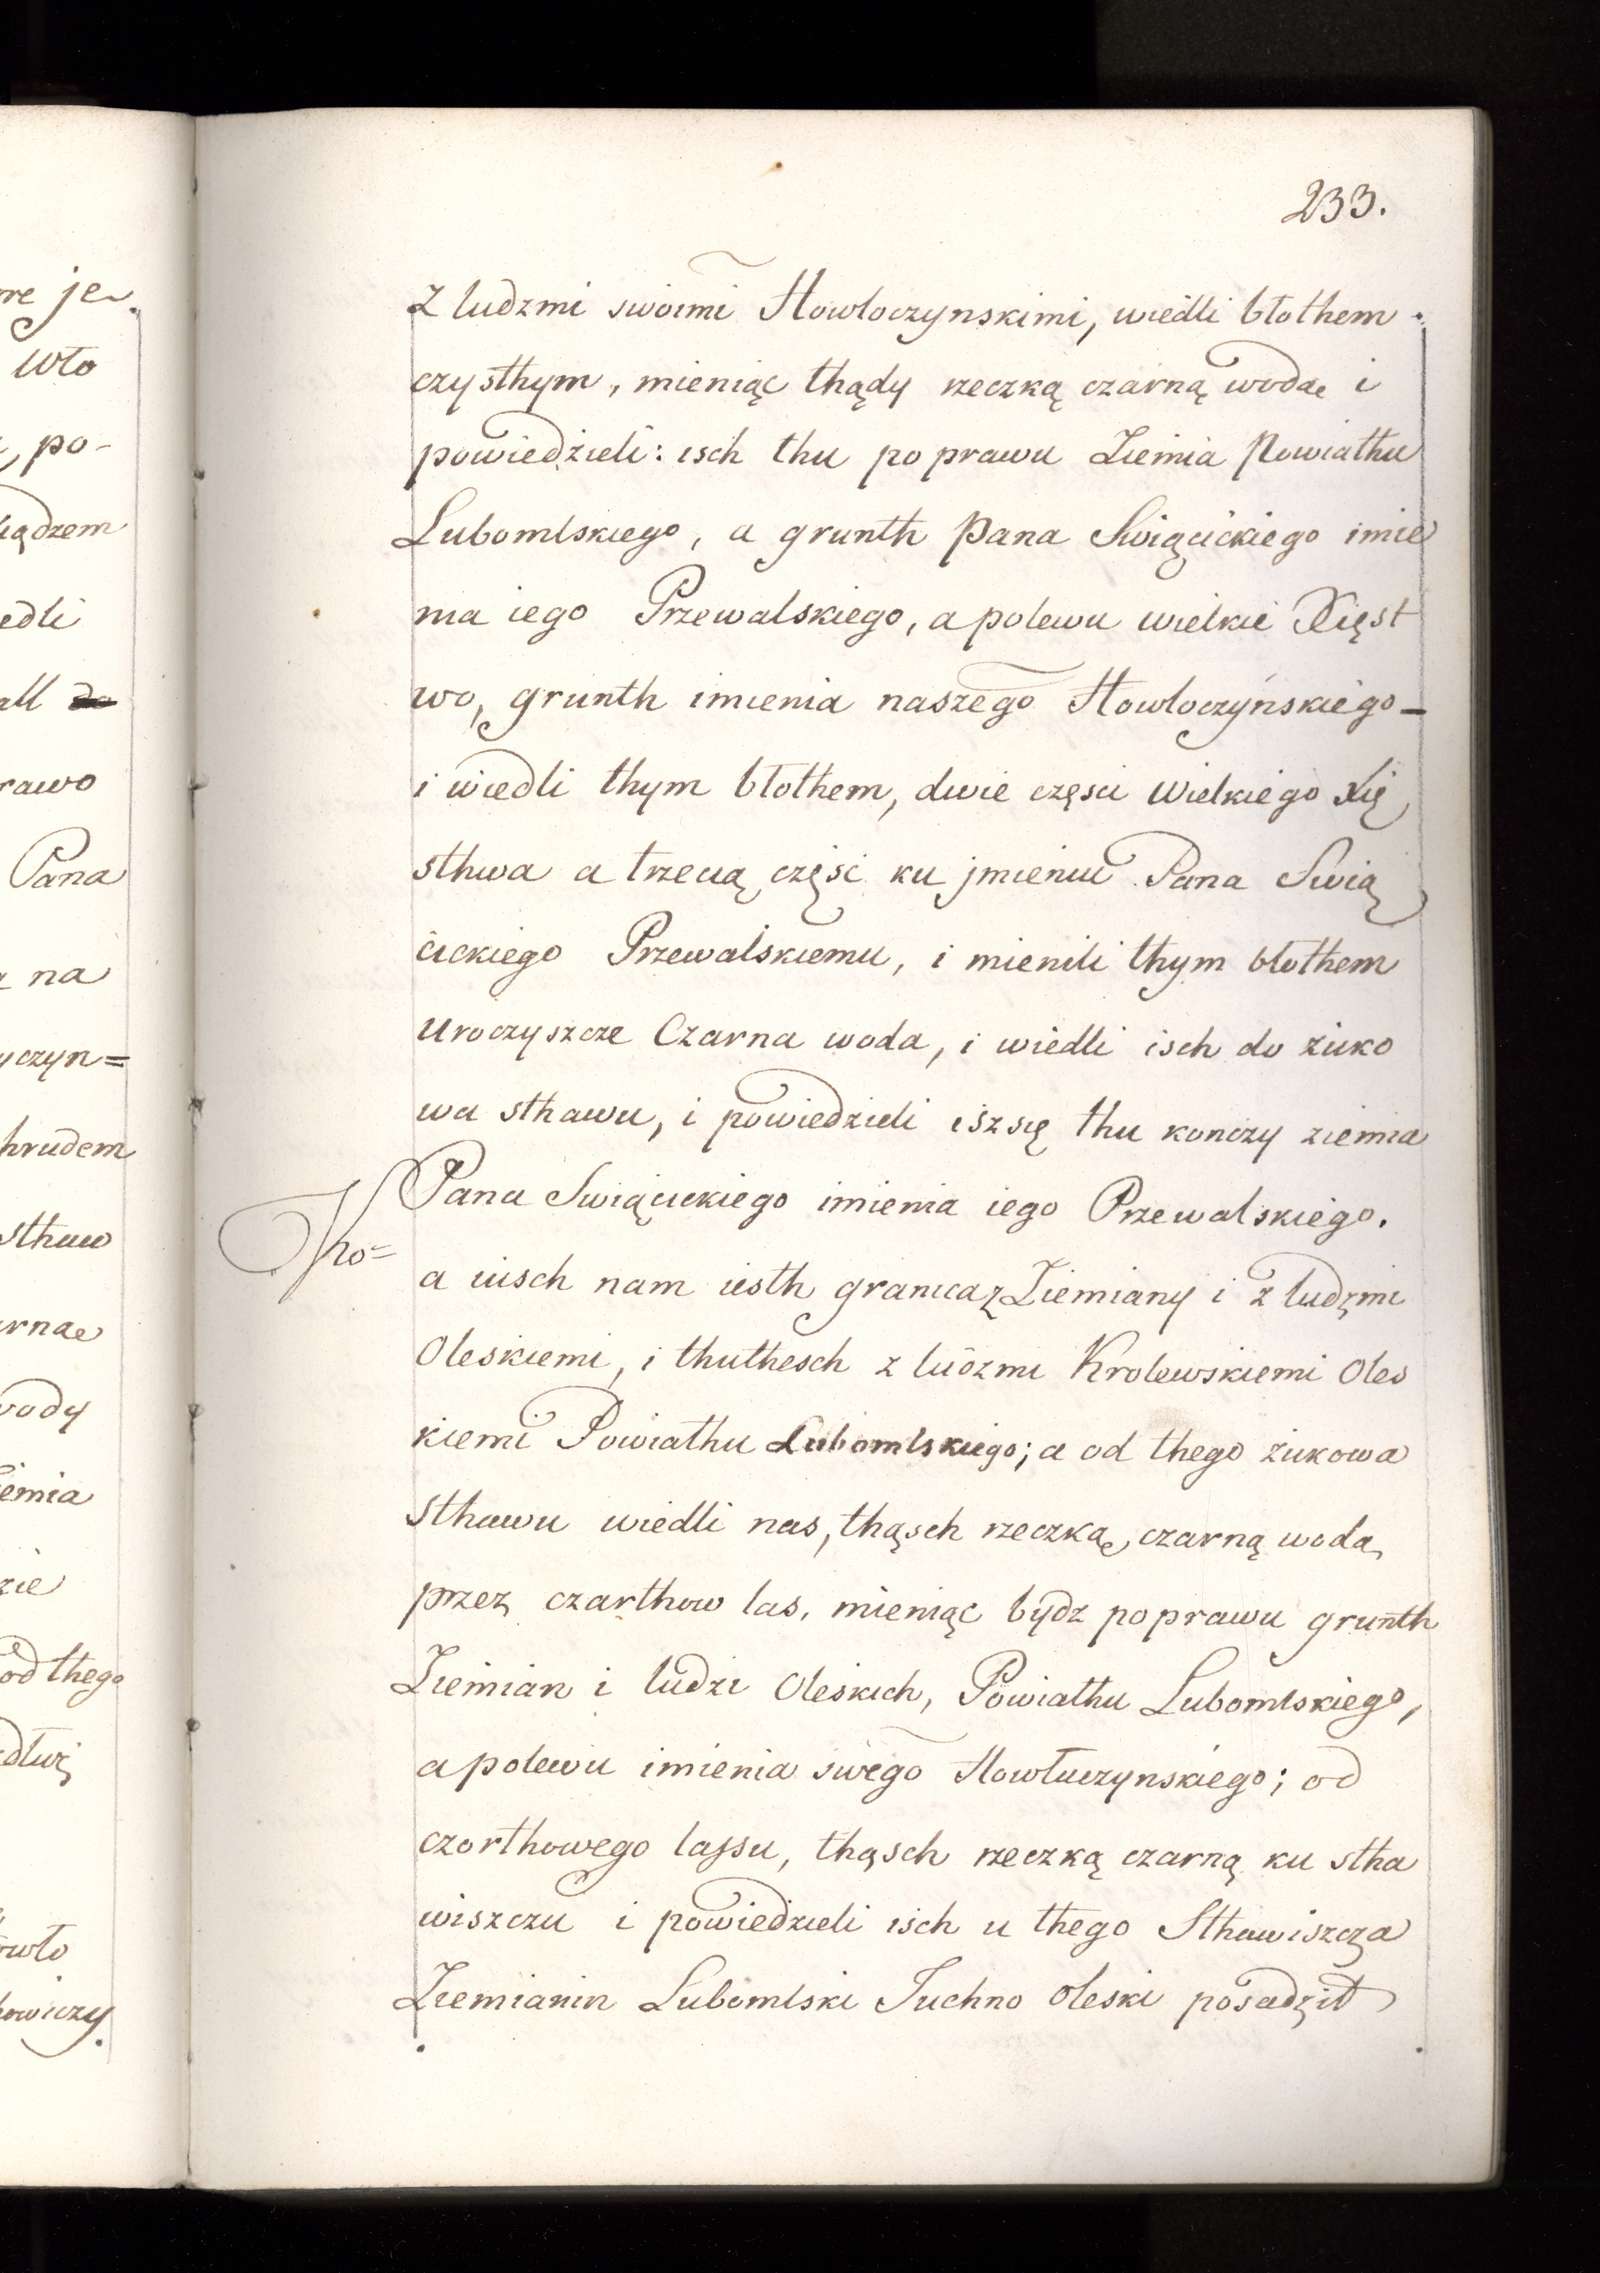 233.
Z ludzmi swoimi Howłoczynskimi, wiedli błothem
czysthym, mieniąc thądy rzeczką czarną wodą i
powiedzieli: isch thu po prawu Ziemia Powiathu
Lubomlskiego, a grunth Pana Swiącickiego imie
nia iego Przewalskiego, a polewu wielkie Xięst
wo, grunth imienia naszego Howłoczyńskiego
i wiedli thym błothem, dwie częsci Wielkiego Xię
sthwa a trzecią częsć ku jmieniu Pana Swią
cickiego Przewalskiemu, i mienili thym błothem
Uroczyszcze Czarna woda, i wiedli isch do żuko
wa sthawu, i powiedzieli isz się thu konczy ziemia
Pana Swiącickiego imienia iego Przewalskiego.
a iusch nam iesth granica z Ziemiany i z ludzmi
Oleskiemi, i thuthesch z ludzmi Krolewskiemi Oles
kiemi Powiathu Lubomlskiego; a od thego żukowa
Sthawu wiedli nas, thąsch rzeczką czarną wodą
przez czarthow las, mieniąc bydz po prawu grunth
Ziemian i ludzi Oleskich, Powiathu Lubomlskiego,
a polewu imienia swego Howłuczynskiego; od
czorthowego lassu, thąsch rzeczką czarną ku stha
wiszczu i powiedzieli isch u thego Sthawiszcza
Ziemianin Lubomlski Juchno Oleski posadził
re je
Wło
po-
iądzem
edli
all do
rawo
Pana
na
yczyn=
hrudem
sthaw
arnae
wody
iemia
zie
od thego
dłuż
wło
kowiczy